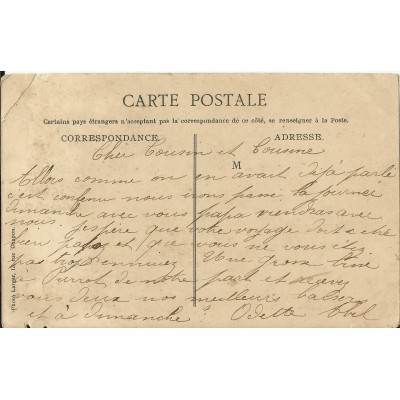 CARTE POSTALE
Certains pays étrangers n'acceptant pas la correspondance de ce côté, se renseigner à la Poste.
CORRESPONDANCE. ADRESSE.
Cher Cousin et Cousine
M
Allors comme on en avait déjà parlé
c'est convenu nous nous passé la journée
dimanche avec vous papa viendras avec
nous. j'espère que votre voyage soit
bien passé et que vous ne vous
pas trop ennuiez Une grosse bise
à Pierrot de notre part et recevez
vous deux nos meilleurs baisers
et à dimanche Odette Abel